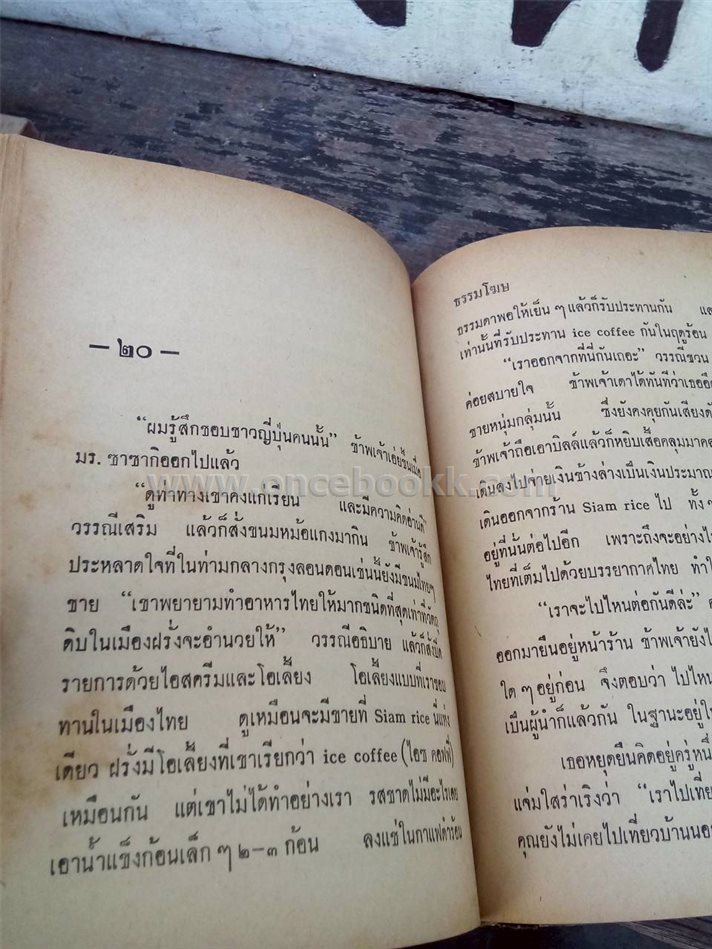 — ๒๐ —
“ผมรู้สึกชอบชาวญี่ปุ่นคนนั้น” ข้าพเจ้าเอ่ยขึ้นเมื่อ
มร. ซาซากิออกไปแล้ว
“ดูท่าทางเขาคงแก่เรียน และมีความคิดอ่านดี”
วรรณีเสริม แล้วก็สั่งขนมหม้อแกงมากิน ข้าพเจ้ารู้สึก
ประหลาดใจที่ในท่ามกลางกรุงลอนดอนเช่นนี้ยังมีขนมไทยๆ
ขาย “เขาพยายามทำอาหารไทยให้มากชนิดที่สุดเท่าที่วัตถุ
ดิบในเมืองฝรั่งจะอำนวยให้” วรรณีอธิบาย แล้วก็สั่งปิด
รายการด้วยไอสครีมและโอเลี้ยง โอเลี้ยงแบบที่เราชอบ
ทานในเมืองไทย ดูเหมือนจะมีขายที่ Siam rice นี่แห่ง
เดียว ฝรั่งมีโอเลี้ยงที่เขาเรียกว่า ice coffee (ไอซ คอฟฟี่)
เหมือนกัน แต่เขาไม่ได้ทำอย่างเรา รสชาดไม่มีอะไรเลย
เอาน้ำแข็งก้อนเล็ก ๆ ๒–๓ ก้อน ลงแช่ในกาแฟดำร้อน
ธรรมโฆษ
ธรรมดาพอให้เย็น ๆ แล้วก็รับประทานกัน
เท่านั้นที่รับประทาน ice coffee กันในฤดูร้อน
“เราออกจากที่นี่กันเถอะ” วรรณีชวน
ค่อยสบายใจ ข้าพเจ้าเดาได้ทันทีว่าเธออึด
ชายหนุ่มกลุ่มนั้น ซึ่งยังคงคุยกันเสียงดัง
ข้าพเจ้าถือเอาบิลล์แล้วก็หยิบเสื้อคลุมมาคล
เดินลงไปจ่ายเงินข้างล่างเป็นเงินประมาณ
เดินออกจากร้าน Siam rice ไป ทั้ง ๆ
อยู่ที่นั่นต่อไปอีก เพราะถึงจะอย่างไร
ไทยที่เต็มไปด้วยบรรยากาศไทย ทำให้
“เราจะไปไหนต่อกันดีล่ะ”
ออกมายืนอยู่หน้าร้าน ข้าพเจ้ายังไม่
ใด ๆ อยู่ก่อน จึงตอบว่า ไปไหน
เป็นผู้นำก็แล้วกัน ในฐานะอยู่
เธอหยุดยืนคิดอยู่ครู่หนึ่
แจ่มใสร่าเริงว่า “เราไปเที่ย
คุณยังไม่เคยไปเที่ยวบ้านนอ
www.oncebookk.com